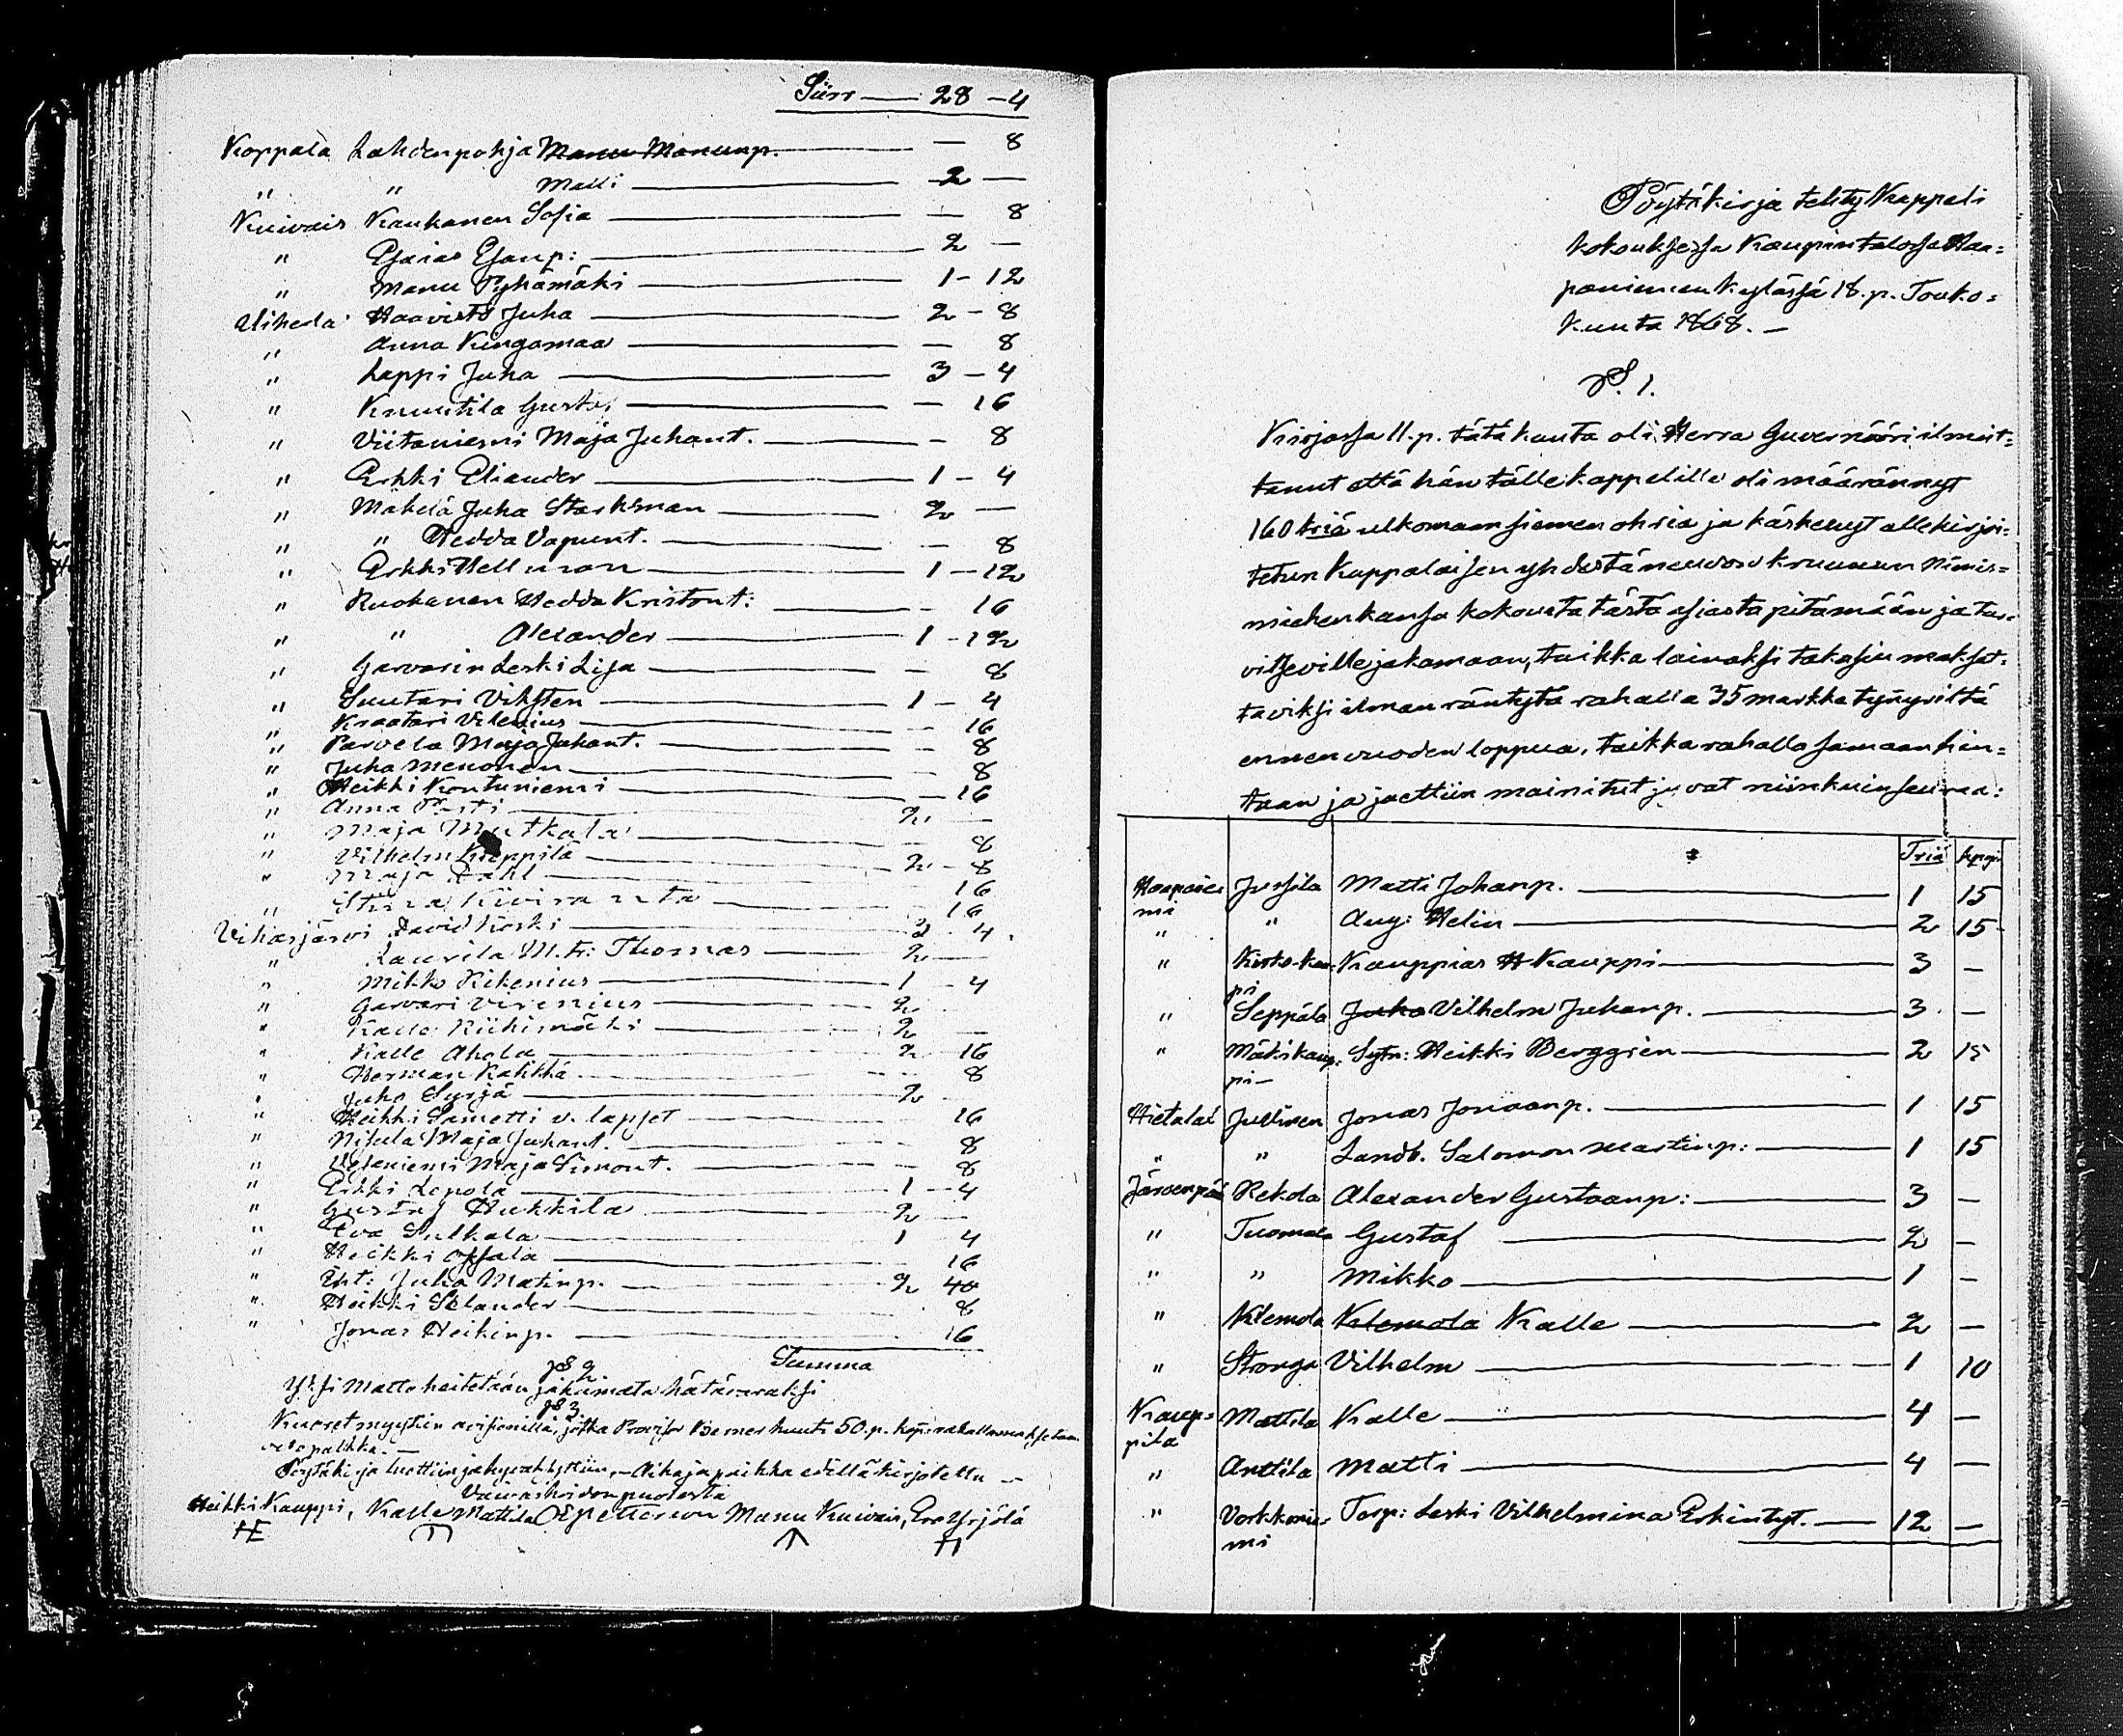 Siirr — 28 – 4
Koppala Lahdenpohja Manu Manunp. — 8
" " Matti — 2 —
Kuivais Kauhanen Sofia — 8
" Esaias Esanp: — 2 —
" Manu Pyhämäki — 1 – 12
Uiherla Haavisto Juha — 2 – 8
" Anna Kingamaa — 8
" Lappi Juha — 3 – 4
" Knuutila Gusta — 16
" Viitaniemi Maja Juhant. — 8
" Erkki Eliander — 1 – 4
" Mäkelä Juha Starkman — 2 —
" " Hedda Vapunt. — 8
" Erkki Hellman — 1 – 12
" Ruohanen Hedda Kristont: — 16
" " Alexander — 1 – 12
" Garvarin Leski Lisa — 8
" Suutari Viksten — 1 – 4
" Kraatari Vilenius — 16
" Parvela Maja Juhant. — 8
" Juha Menonen — 8
" Heikki Kontuniemi — 16
" Anna — 2 —
" Maja Mutkala — 8
" Vilhelm Knappilä — 2 – 8
" Maja Dahl — 16
" Stina Kiviranta — 16
Viharjärvi David Koski — 2 – 4
" Laurila M. tr: Thomas — 2 —
" Mikko Kikenius — 1 – 4
" Garvari Virenius — 2
" Kalle Riihimäki — 2 —
" Kalle Ahola — 2 16
" Herman Kahkkä — 8
" Juho Syrjä — 2
" Heikki Sametti v. lapset — 16
" Nikula Maja Juhant. — 8
" Maja Simont. — 8
" Erkki Lepola — 1 – 4
" Gustaf Hukkila — 2 —
" Eva Sulkala — 1 4
" Heikki Ojsala — 16
" Eht: Juha Matinp. — 2 40
" Heikki Selander — 8
" Jonas Heikinp. — 16
Summa
§ 2
Yksi Matto heitetään jakamata hätävaraksi
§ 3
Kuoret myytiin avisionilla, jotka Provisor Bemer huuti 50. p. kop: rahalla maksetaan
palkka. —
Pöytäkirja luettiin ja hyväksyttiin, – Aika ja paikka edellä kirjotettu —
Vaivashoidon puolesta
Heikki Kauppi, Kalle Mattila Manu Kuivais, Ero Yrjölä
HE
Pöytäkirja tehty Kappeli
kokouksessa Kaupin talossa Haa=
paniemen kylässä 18. p. Touko=
kuuta 1868. —
§. 1.
Kirjassa 11. p. tätä kuuta oli Herra Guvernööri ilmoit=
tanut että hän tälle kappelille oli määrännyt
160 triä ulkomaan siemen ohria ja käskenyt allekirjoi=
tetun Kappalaisen yhdestä neuvon kruunun Nimis=
miehen kansa kokousta tästä asiasta pitämään ja tar=
vitseville jakamaan, taikka lainaksi takasin maksat=
taviksi ilman räntystä rahalla 35 markka tynyriltä
ennen vuoden loppua, taikka rahalla samaan hin=
taan ja jaettiin mainitut jyvät niinkuin seuraa:
Triä kppja
Haapanie Jussila Matti Johanp. — 1 15
mi
" " Aug: Helin — 2 15
" Kirko-kau= Kauppias H Kauppi — 3 —
pi
" Seppälä Juho Vilhelm Juhanp. — 3 —
" Mäkikaup= Sytn: Heikki Berggren — 2 15
pi —
Hietalat Jullinen Jonas Jonaanp. — 1 15
" " Landb. Salomon Martinp: — 1 15
Järvenpää Rekola Alexander Gustaanp: — 3 —
" Tuomala Gustaf — 2 —
" " Mikko — 1 —
" Klemola Klemola Kalle — 2 —
" Stronga Vilhelm — 1 10
Kaup= Mattila Kalle — 4 —
pila
" Anttila Matti — 4 —
" Vorkkonie= Torp: Leski Vilhelmina Erkintyt. — 12 —
mi